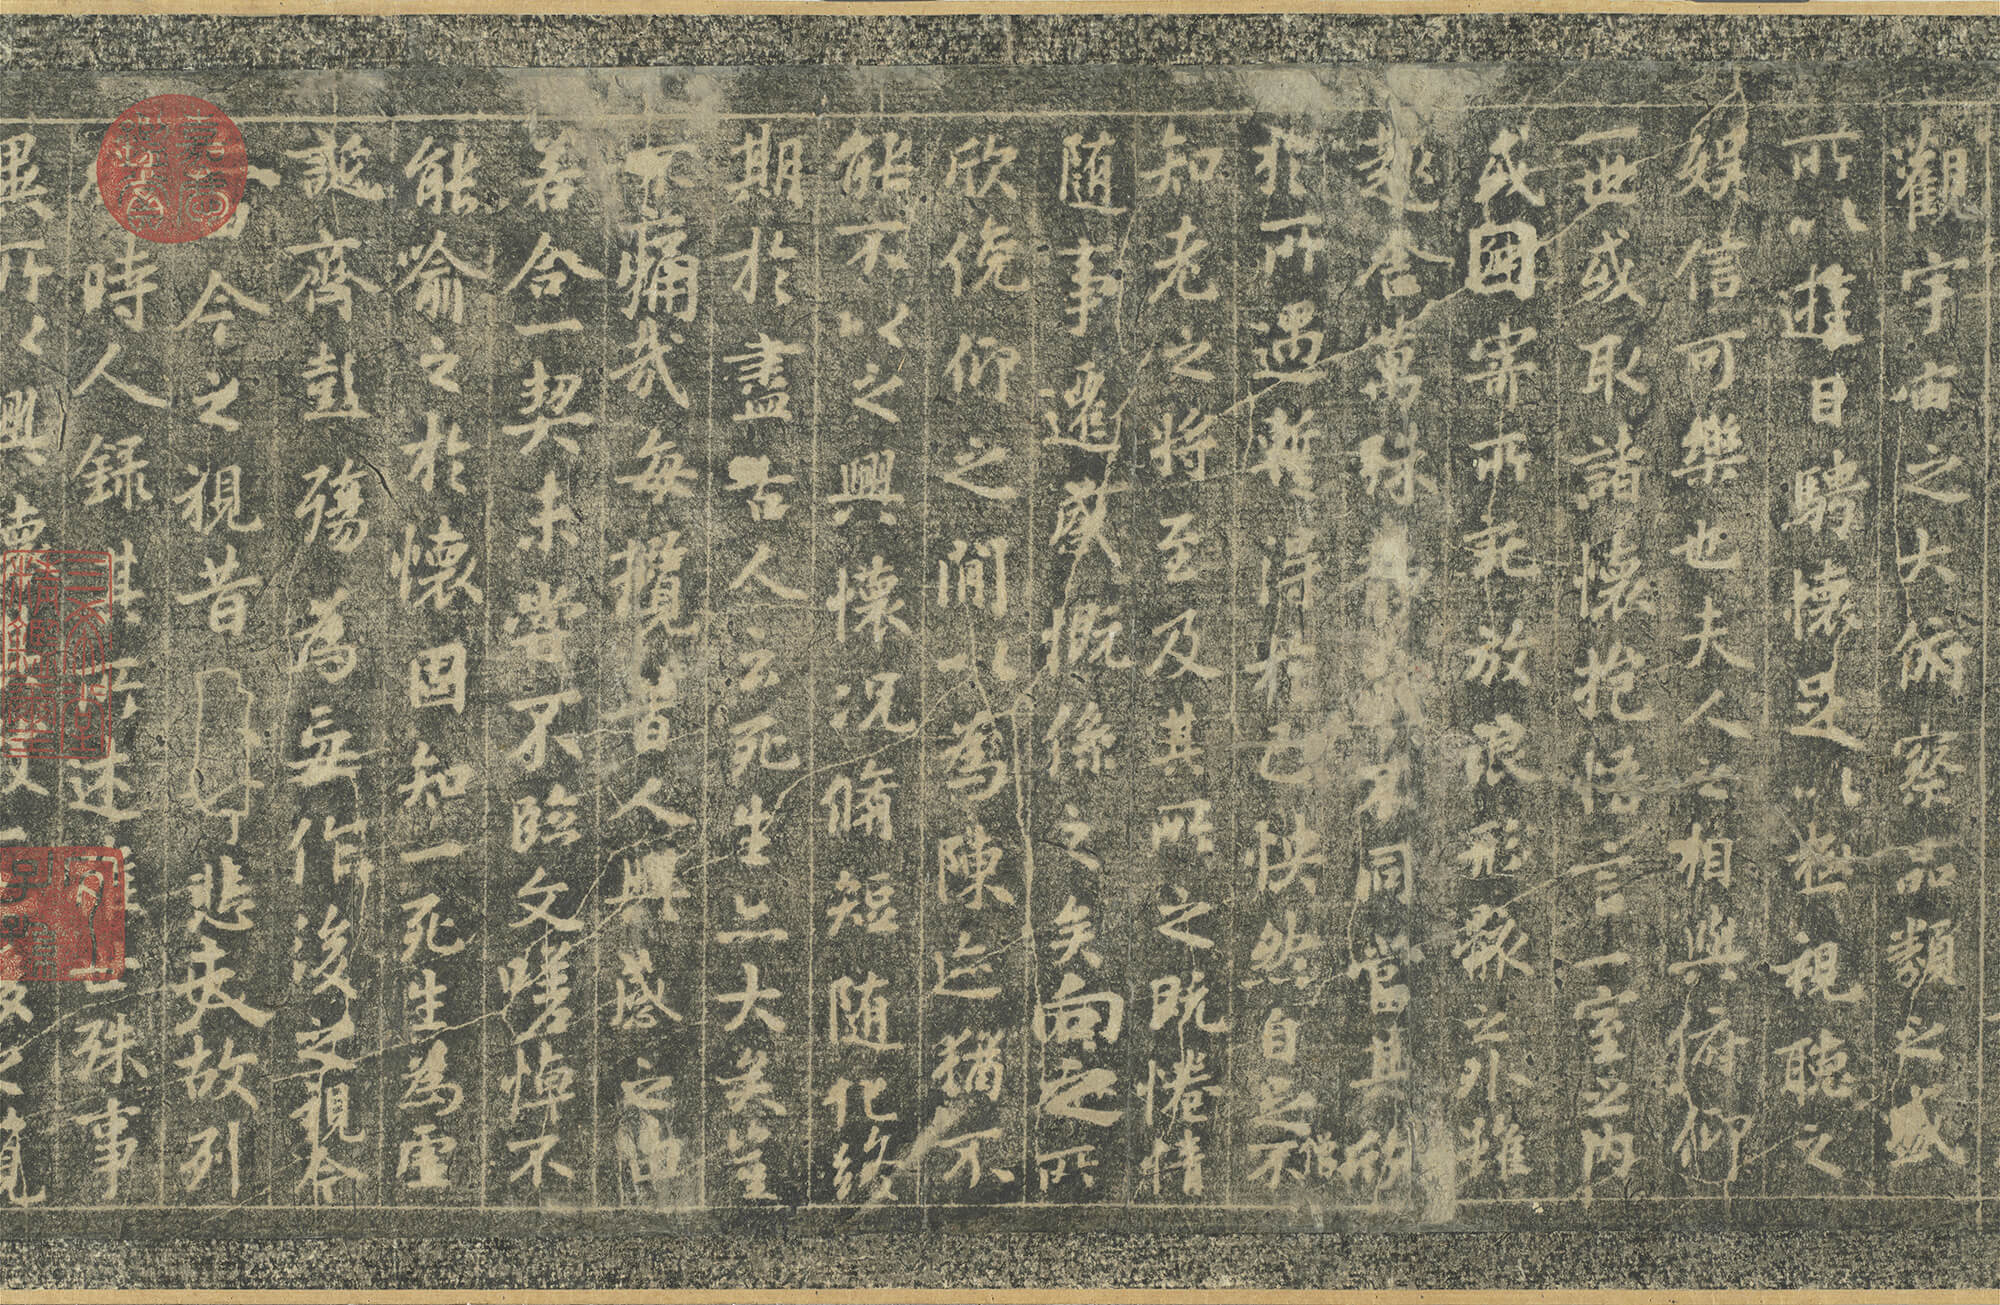 觀宇宙之大俯察品類之盛
所以遊目騁懷足以極視聽之
娛信可樂也夫人之相與俯仰
一世或取諸懷抱悟言一室之內
或因寄所託放浪形骸之外雖
趣舍萬殊靜躁不同當其欣
於所遇暫得於己怏然自足不
僧
知老之將至及其所之既惓情
隨事遷感慨係之矣向之所
欣俛仰之閒以為陳迹猶不
能不以之興懷況脩短隨化終
期於盡古人云死生亦大矣豈
不痛哉每攬昔人興感之由
若合一契未嘗不臨文嗟悼不
能喻之於懷固知一死生為虛
誕齊彭殤為妄作後之視今
今之視昔悲夫故列
時人錄其所述雖世殊事
異所以興懷一後之覽